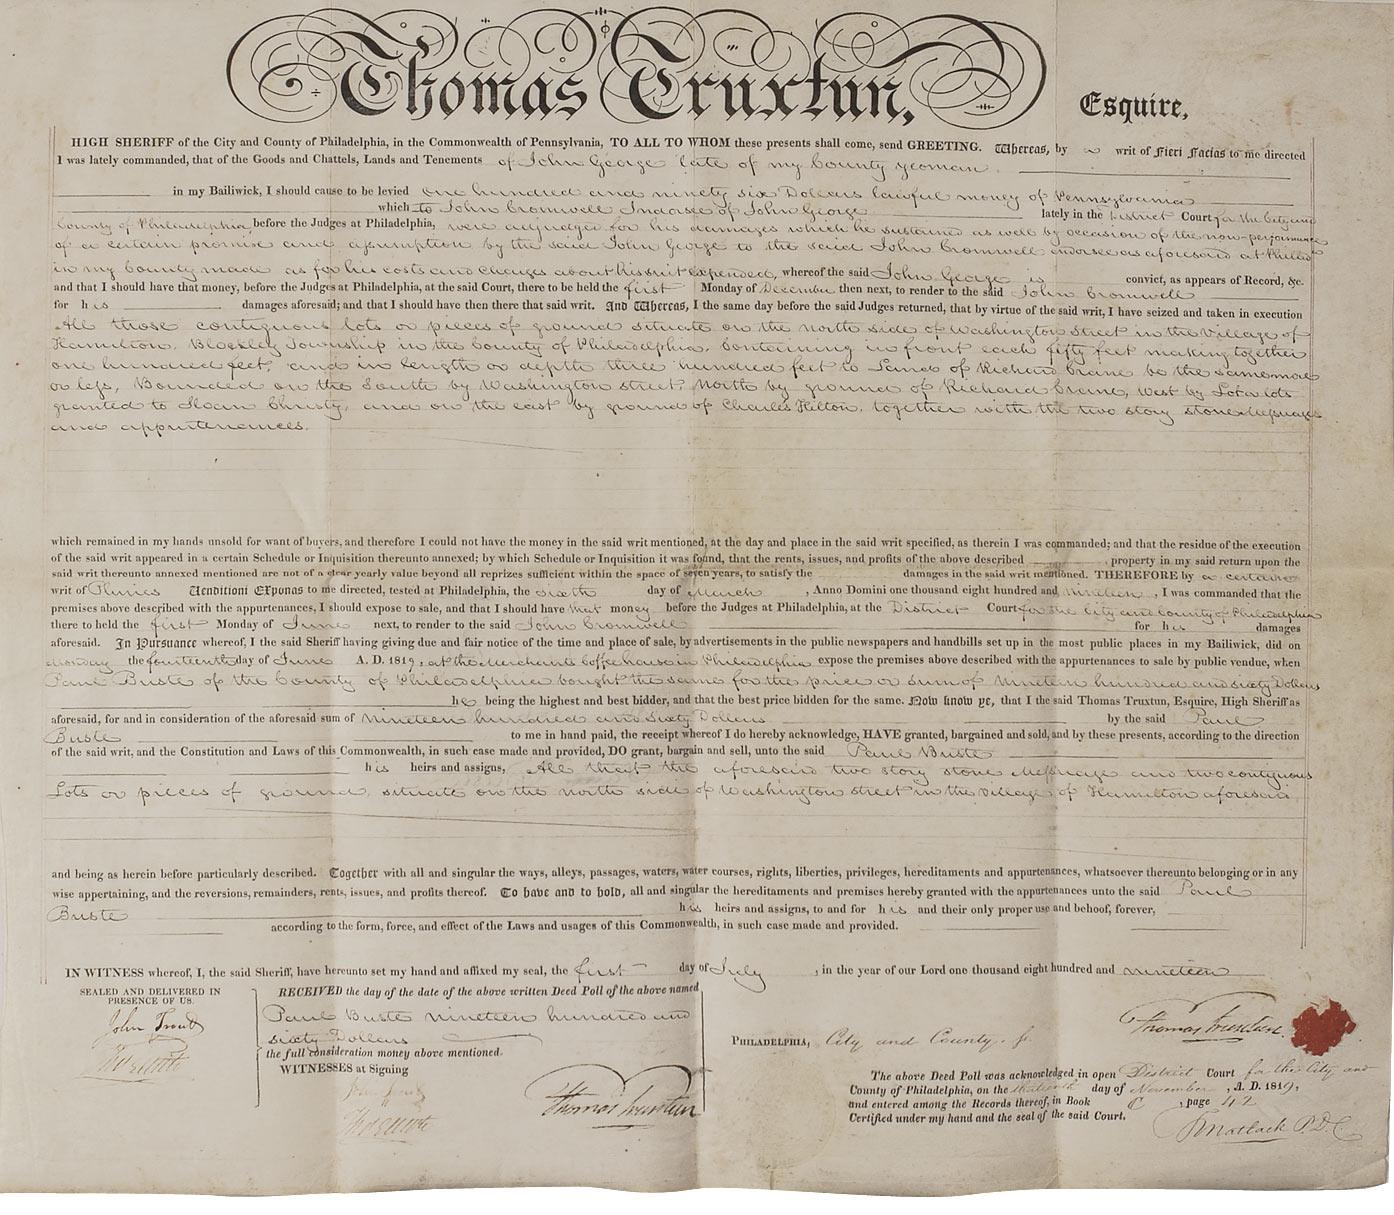 Thomas Truxtun, Esquire,
HIGH SHERIFF of the City and County of Philadelphia, in the Commonwealth of Pennsylvania, TO ALL TO WHOM these presents shall come, send GREETING. Whereas, by a writ of Fieri Facias to me directed
I was lately commanded, that of the Goods and Chattels, Lands and Tenements of John George late of my County yeoman
in my Bailiwick, I should cause to be levied one hundred and ninety six Dollars lawful money of Pennsylvania
which to John Cromwell Indorsee of John George lately in the District Court for the City and
County of Philadelphia, before the Judges at Philadelphia, were adjudged for his damages which he sustained as well by occasion of the non-performance
of a certain promise and assumption by the said John George to the said John Cromwell endorsee as aforesaid at Philada
in my County made as for his costs and charges about his suit expended, whereof the said John George is convict, as appears of Record, &c.
and that I should have that money, before the Judges at Philadelphia, at the said Court, there to be held the first Monday of December then next, to render to the said John Cromwell
for his damages aforesaid; and that I should have then there that said writ. And Whereas, I the same day before the said Judges returned, that by virtue of the said writ, I have seized and taken in execution
All those contiguous lots or pieces of ground situate on the north side of Washington Street in the Village of
Hamilton, Blockley Township in the County of Philadelphia. Containing in front each fifty feet making together
one hundred feet, and in length or depth three hundred feet to Land of Richard Crane be the same more
or less, Bounded on the South by Washington street, North by ground of Richard Crane, West by Lot or lots
granted to Sloan Christy, and on the east by ground of Charles Hilton, together with the two story stone Messuage
and appurtenances.
which remained in my hands unsold for want of buyers, and therefore I could not have the money in the said writ mentioned, at the day and place in the said writ specified, as therein I was commanded; and that the residue of the execution
of the said writ appeared in a certain Schedule or Inquisition thereunto annexed; by which Schedule or Inquisition it was found, that the rents, issues, and profits of the above described property in my said return upon the
said writ thereunto annexed mentioned are not of a clear yearly value beyond all reprizes sufficient within the space of seven years, to satisfy the damages in the said writ mentioned. THEREFORE by a certain
writ of Plures Venditioni Exponas to me directed, tested at Philadelphia, the sixth day of March, Anno Domini one thousand eight hundred and nineteen, I was commanded that the
premises above described with the appurtenances, I should expose to sale, and that I should have that money before the Judges at Philadelphia, at the District Court for the City and County of Philadelphia
there to held the first Monday of June next, to render to the said John Cromwell for his damages
aforesaid. In Pursuance whereof, I the said Sheriff having giving due and fair notice of the time and place of sale, by advertisements in the public newspapers and handbills set up in the most public places in my Bailiwick, did on
Monday the fourteenth day of June A. D. 1819, at the Merchants Coffee house in Philadelphia expose the premises above described with the appurtenances to sale by public vendue, when
Paul Buste of the County of Philadelphia bought the same for the price or sum of Nineteen hundred and sixty Dollars
he being the highest and best bidder, and that the best price bidden for the same. Now know ye, that I the said Thomas Truxtun, Esquire, High Sheriff as
aforesaid, for and in consideration of the aforesaid sum of nineteen hundred and sixty Dollars by the said Paul
Buste to me in hand paid, the receipt whereof I do hereby acknowledge, HAVE granted, bargained and sold, and by these presents, according to the direction
of the said writ, and the Constitution and Laws of this Commonwealth, in such case made and provided, DO grant, bargain and sell, unto the said Paul Buste
his heirs and assigns, All that the aforesaid two story stone Messuage and two contiguous
Lots or pieces of ground, situate on the north side of Washington street in the Village of Hamilton aforesaid
and being as herein before particularly described. Together with all and singular the ways, alleys, passages, waters, water courses, rights, liberties, privileges, hereditaments and appurtenances, whatsoever thereunto belonging or in any
wise appertaining, and the reversions, remainders, rents, issues, and profits thereof. To have and to hold, all and singular the hereditaments and premises hereby granted with the appurtenances unto the said Paul
Buste his heirs and assigns, to and for his and their only proper use and behoof, forever,
according to the form, force, and effect of the Laws and usages of this Commonwealth, in such case made and provided.
IN WITNESS whereof, I, the said Sheriff, have hereunto set my hand and affixed my seal, the first day of July, in the year of our Lord one thousand eight hundred and nineteen
SEALED AND DELIVERED IN
PRESENCE OF US.
John Trout
RECEIVED the day of the date of the above written Deed Poll of the above named
Paul Buste nineteen hundred and
sixty Dollars
the full consideration money above mentioned.
WITNESSES at Signing
John Trout
Thomas Truxtun
Thomas Truxtun
PHILADELPHIA, City and County, ss.
The above Deed Poll was acknowledged in open District Court for the City and
County of Philadelphia, on the day of November, A. D. 1819,
and entered among the Records thereof, in Book C, page 42
Certified under my hand and the seal of the said Court.
T Matlack P.D.C.